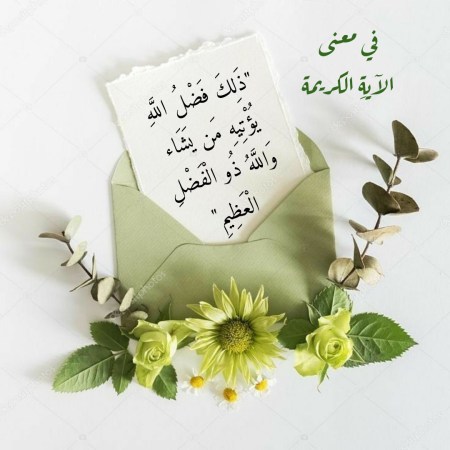 في معنى
الآيةِ الكريمة
"ذَلِكَ فَضْلُ اللَّهِ
يُؤْتِيهِ مَن يشَاء
وَاللَّهُ ذُو الْفَضْلِ
الْعَظِيمِ"